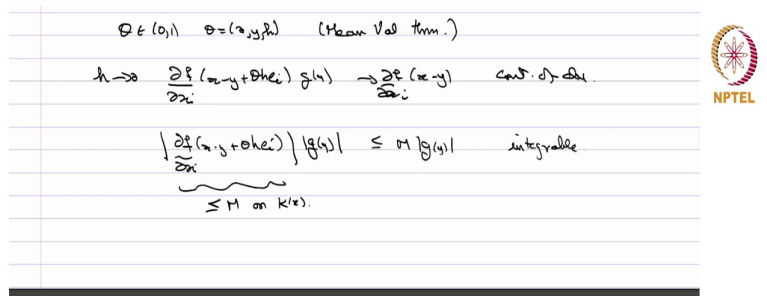 θ ∈ (0,1) θ = (x,y,h) (Mean Val. thm.)
h→0 ∂f/∂xi (x-y+θhei) g(y) → ∂f/∂xi (x-y) cont. of der.
|∂f/∂xi (x-y+θhei)| |g(y)| ≤ M |g(y)| integrable
≤ M on K(x).
NPTEL